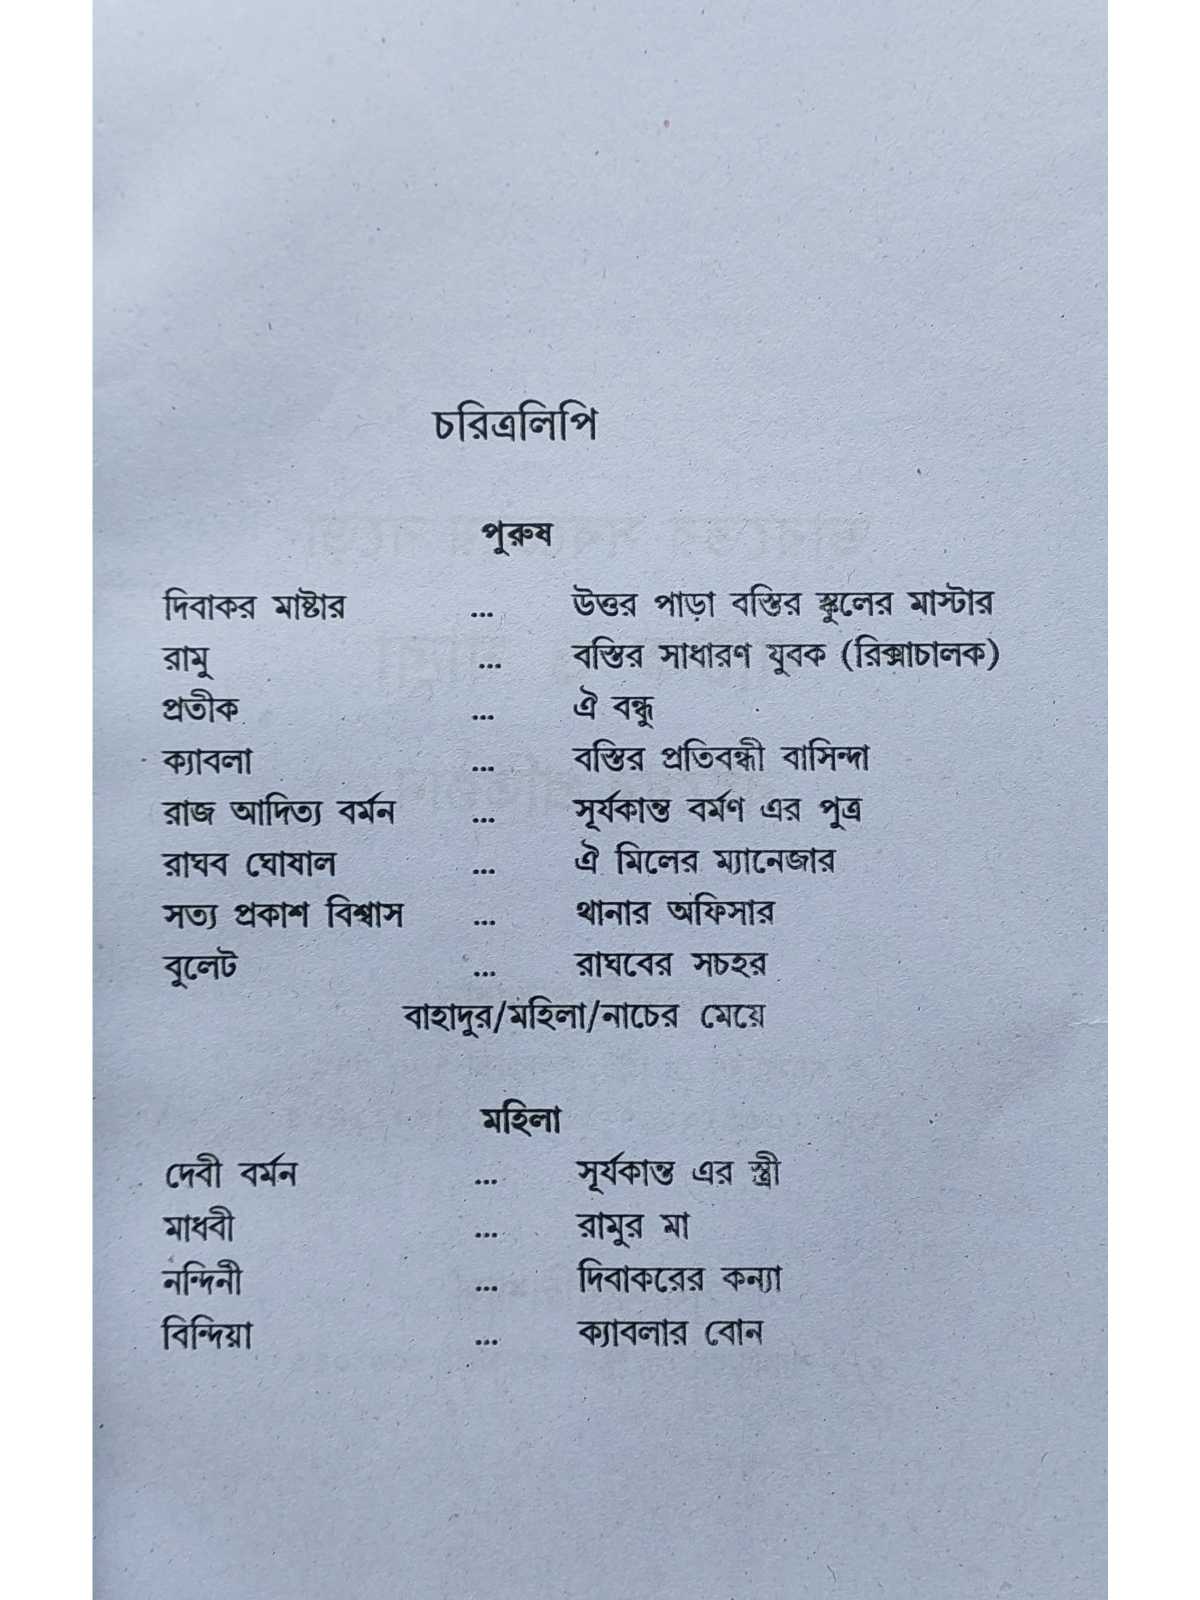 চরিত্রলিপি
পুরুষ
দিবাকর মাষ্টার ... উত্তর পাড়া বস্তির স্কুলের মাস্টার
রামু ... বস্তির সাধারণ যুবক (রিক্সাচালক)
প্রতীক ... ঐ বন্ধু
ক্যাবলা ... বস্তির প্রতিবন্ধী বাসিন্দা
রাজ আদিত্য বর্মন ... সূর্যকান্ত বর্মণ এর পুত্র
রাঘব ঘোষাল ... ঐ মিলের ম্যানেজার
সত্য প্রকাশ বিশ্বাস ... থানার অফিসার
বুলেট ... রাঘবের সচহর
বাহাদুর/মহিলা/নাচের মেয়ে
মহিলা
দেবী বর্মন ... সূর্যকান্ত এর স্ত্রী
মাধবী ... রামুর মা
নন্দিনী ... দিবাকরের কন্যা
বিন্দিয়া ... ক্যাবলার বোন